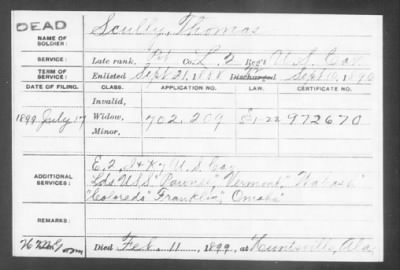 DEAD
NAME OF SOLDIER: Scully, Thomas
SERVICE: Late rank, Pvt Co. L, 2 Reg't U.S. Cav
TERM OF SERVICE: Enlisted Sept 21, 1888 Discharged Sept 1896
DATE OF FILING. CLASS. APPLICATION NO. LAW. CERTIFICATE NO.
Invalid,
1899 July 17 Widow, 702.209 972670
Minor,
ADDITIONAL SERVICES: E. 2, & K 7 U.S. Cav
Lds. U.S.S. "Pawnee", "Vermont", "Wabash"
"Colorado" "Franklin", "Omaha"
REMARKS:
Died Feb. 11, 1899, at Huntsville, Ala.